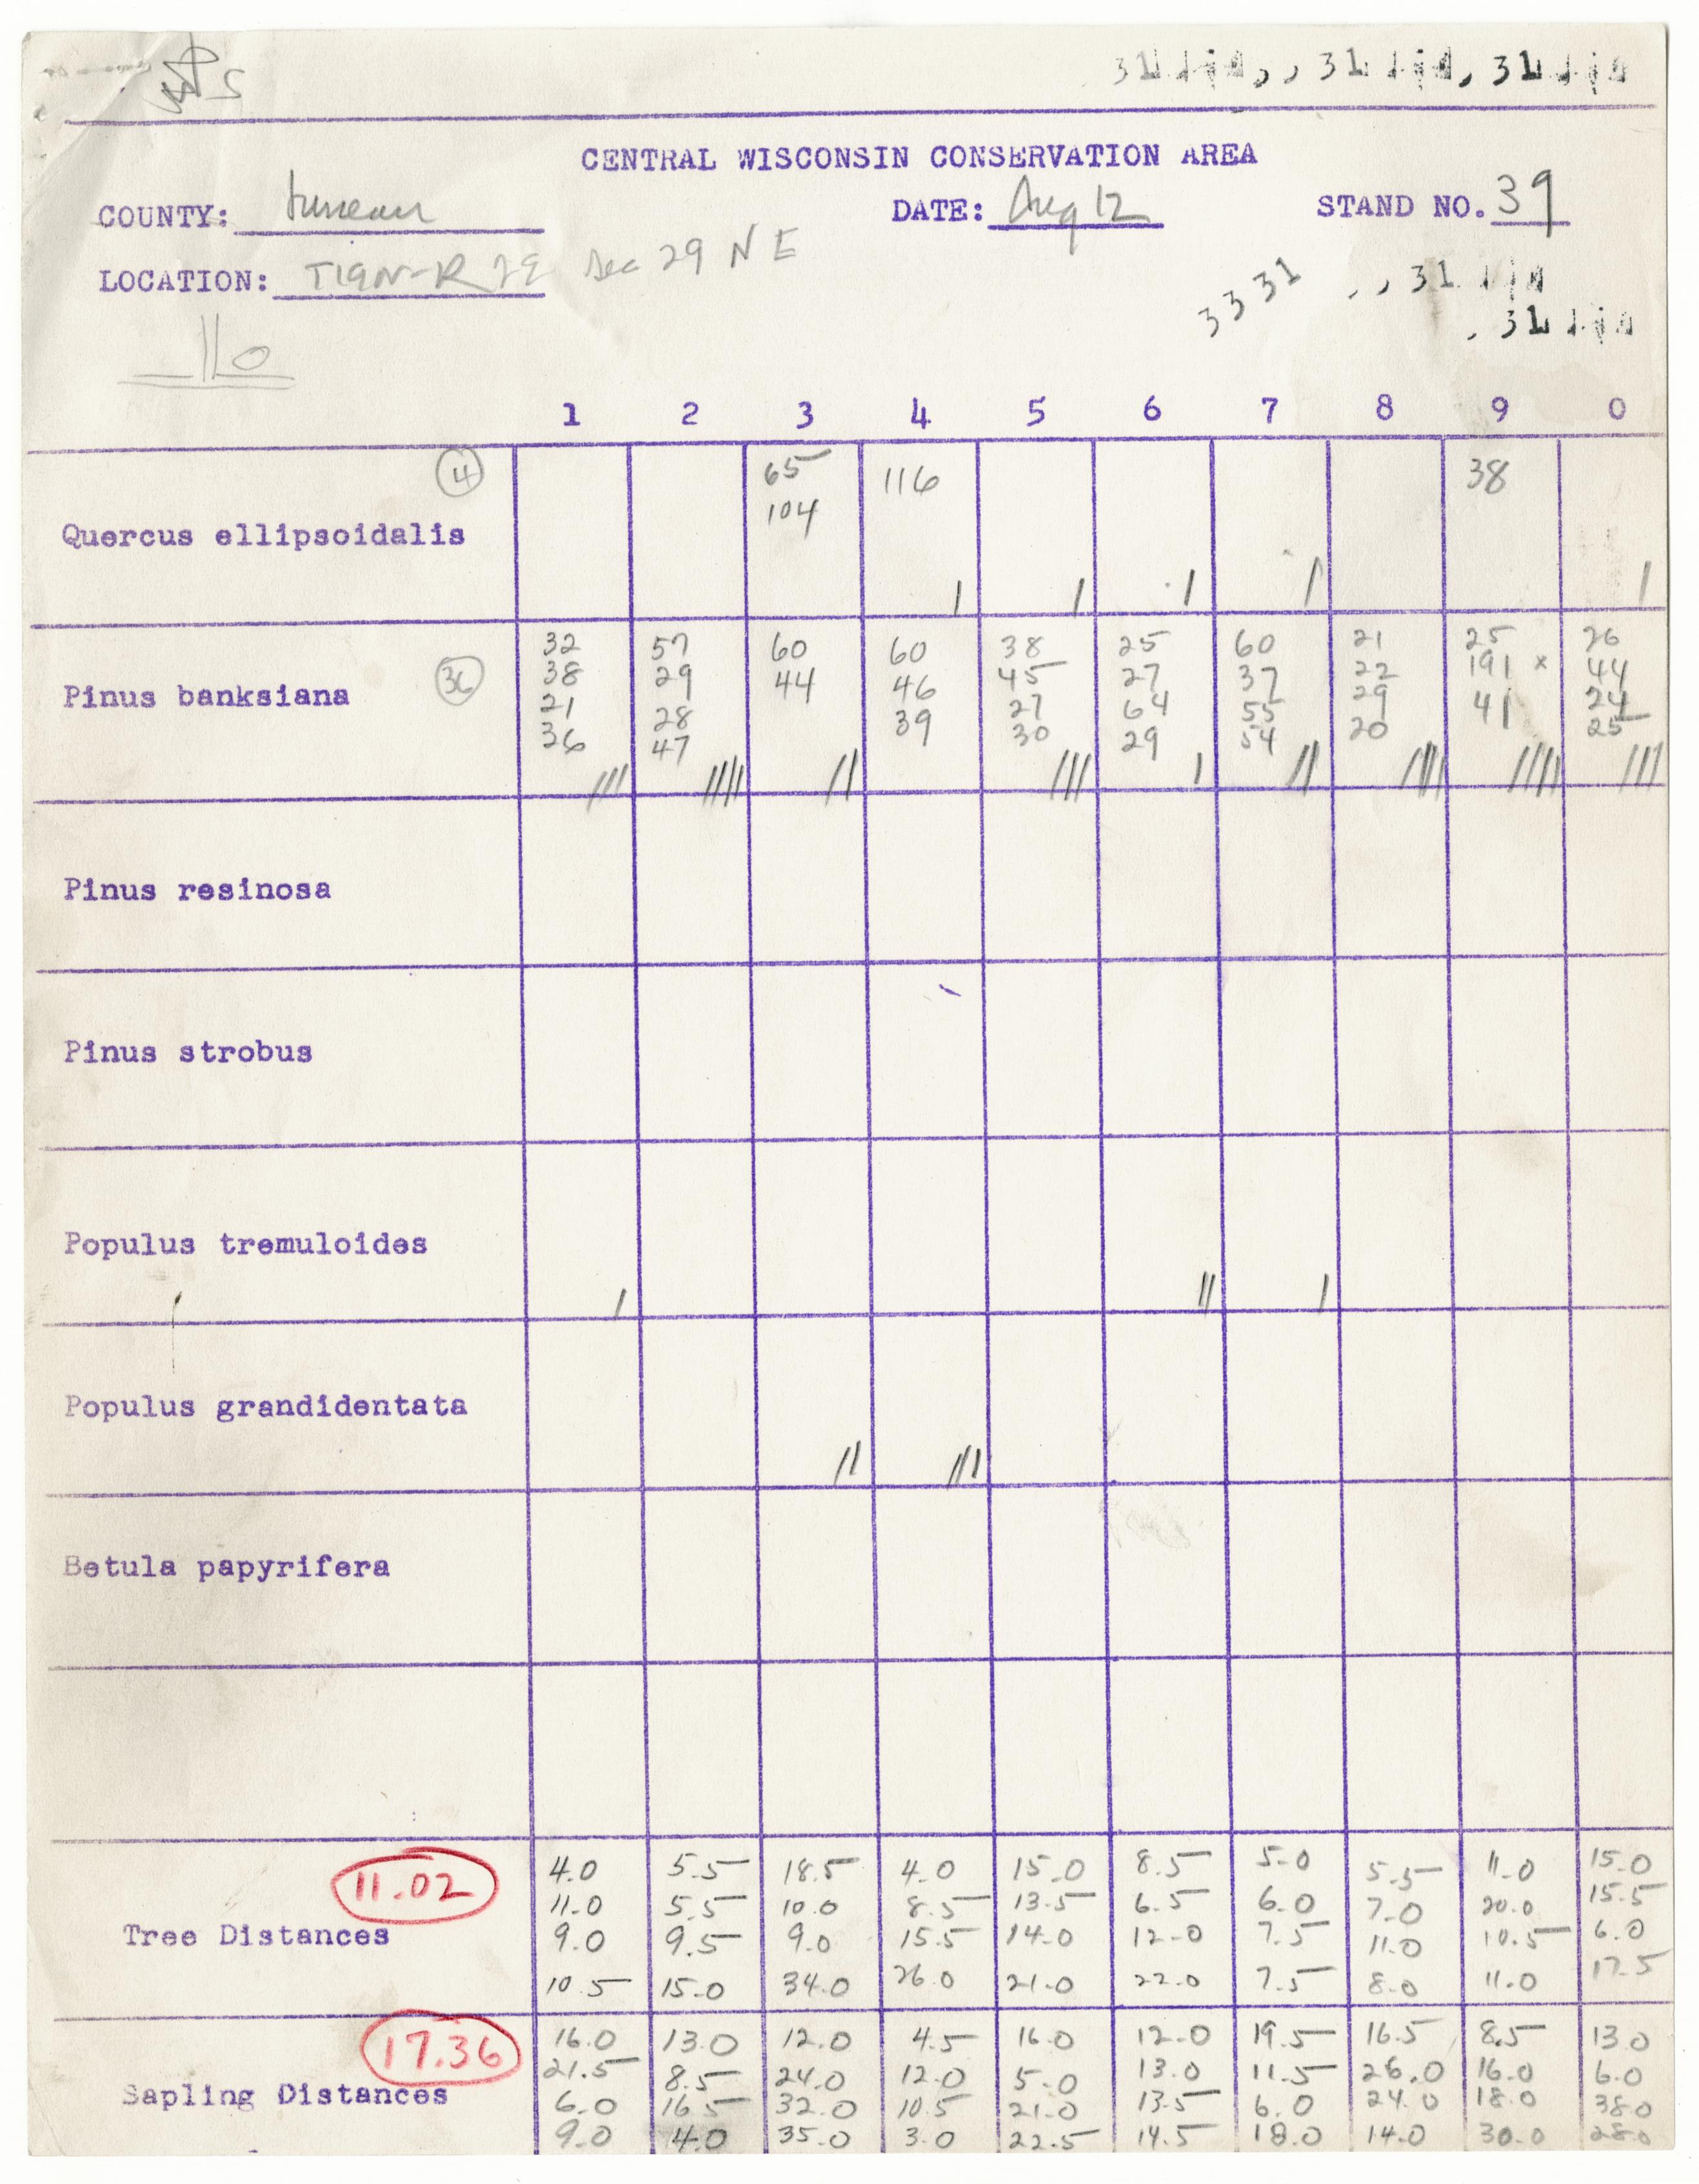 CENTRAL WISCONSIN CONSERVATION AREA
COUNTY: Juneau DATE: Aug 12 STAND NO. 39
LOCATION: T19N-R2E Sec 29 NE
3331 , , 31
, 31
110
1 2 3 4 5 6 7 8 9 0
Quercus ellipsoidalis 4 65 116 38
104
Pinus banksiana 36 32 57 60 60 38 25 60 21 25 26
38 29 44 46 45 27 37 22 191 x 44
21 28 39 27 64 55 29 41 24
36 47 30 29 54 20 25
Pinus resinosa
Pinus strobus
Populus tremuloides
Populus grandidentata
Betula papyrifera
Tree Distances 11.02 4.0 5.5 18.5 4.0 15.0 8.5 5.0 5.5 11.0 15.0
11.0 5.5 10.0 8.5 13.5 6.5 6.0 7.0 20.0 15.5
9.0 9.5 9.0 15.5 14.0 12.0 7.5 11.0 10.5 6.0
10.5 15.0 34.0 26.0 21.0 22.0 7.5 8.0 11.0 17.5
Sapling Distances 17.36 16.0 13.0 12.0 4.5 16.0 12.0 19.5 16.5 8.5 13.0
21.5 8.5 24.0 12.0 5.0 13.0 11.5 26.0 16.0 6.0
6.0 16.5 32.0 10.5 21.0 13.5 6.0 24.0 18.0 38.0
9.0 4.0 35.0 3.0 22.5 14.5 18.0 14.0 30.0 28.0